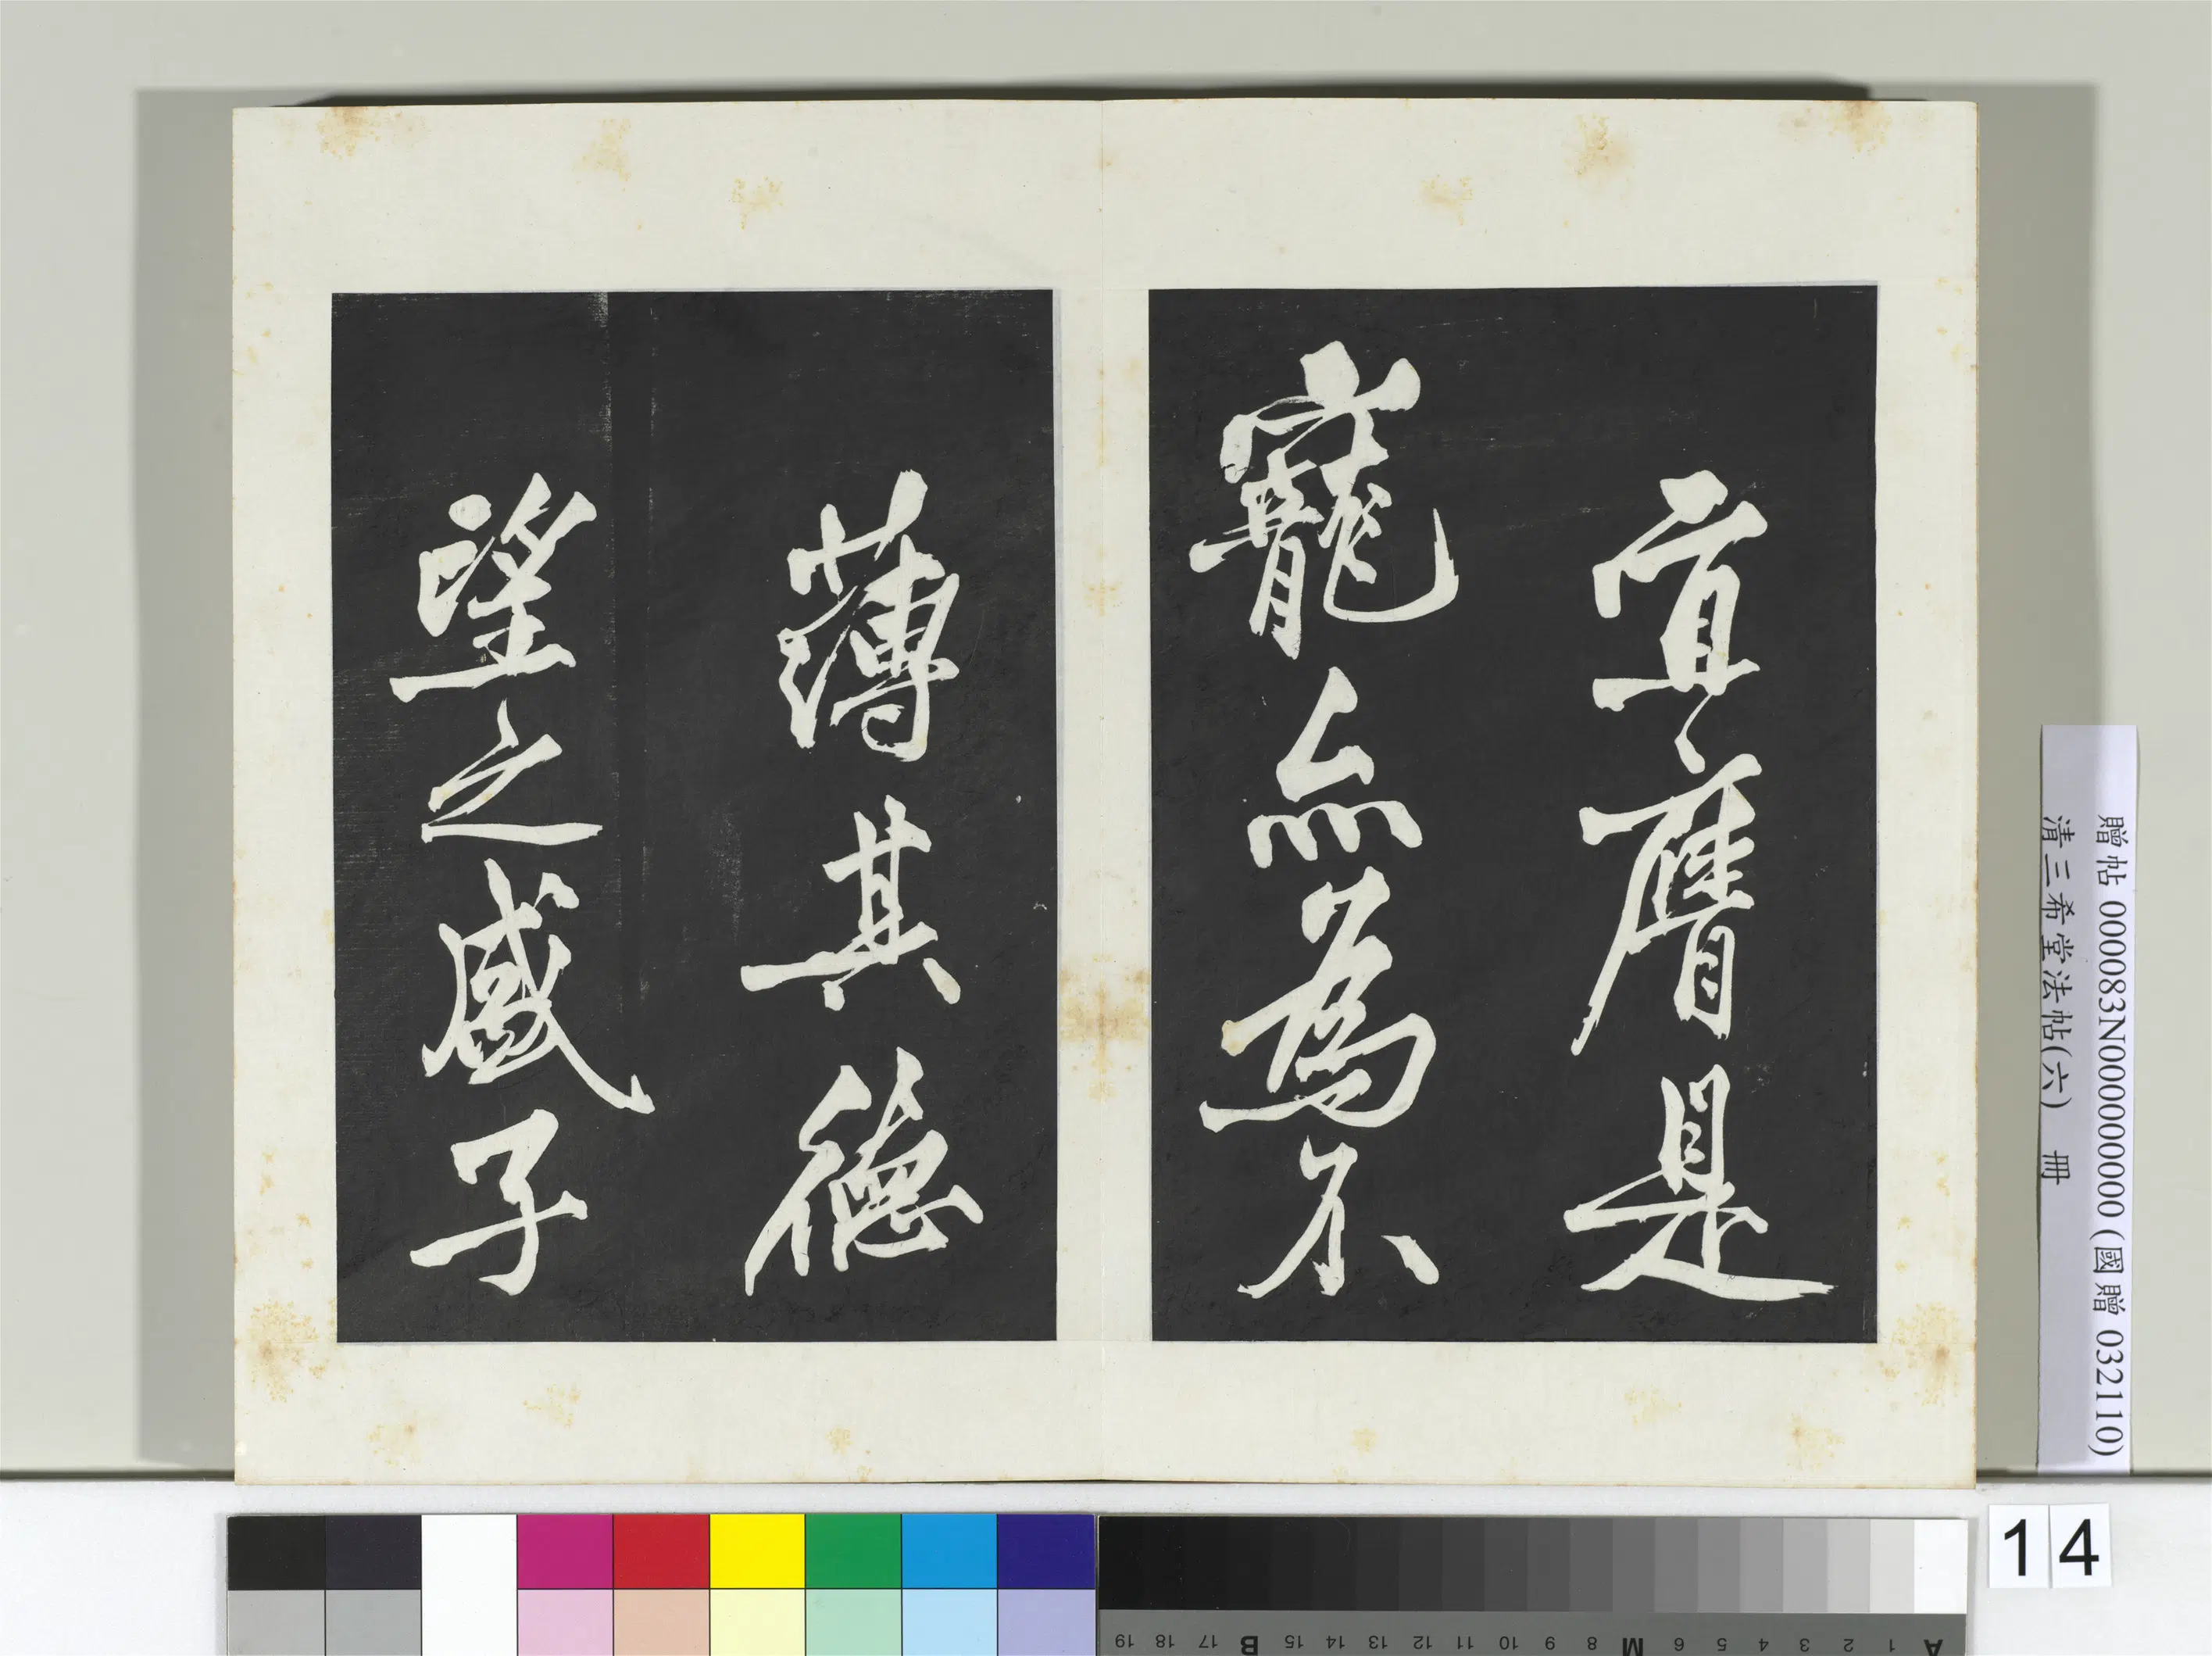 宜膺是
寵無為不
薄其德
望之盛子
贈帖 000083N000000000 (國贈 032110)
清三希堂法帖(六) 冊
14
A 1 2 3 4 5 6 M 8 9 10 11 12 13 14 15 B 17 18 19